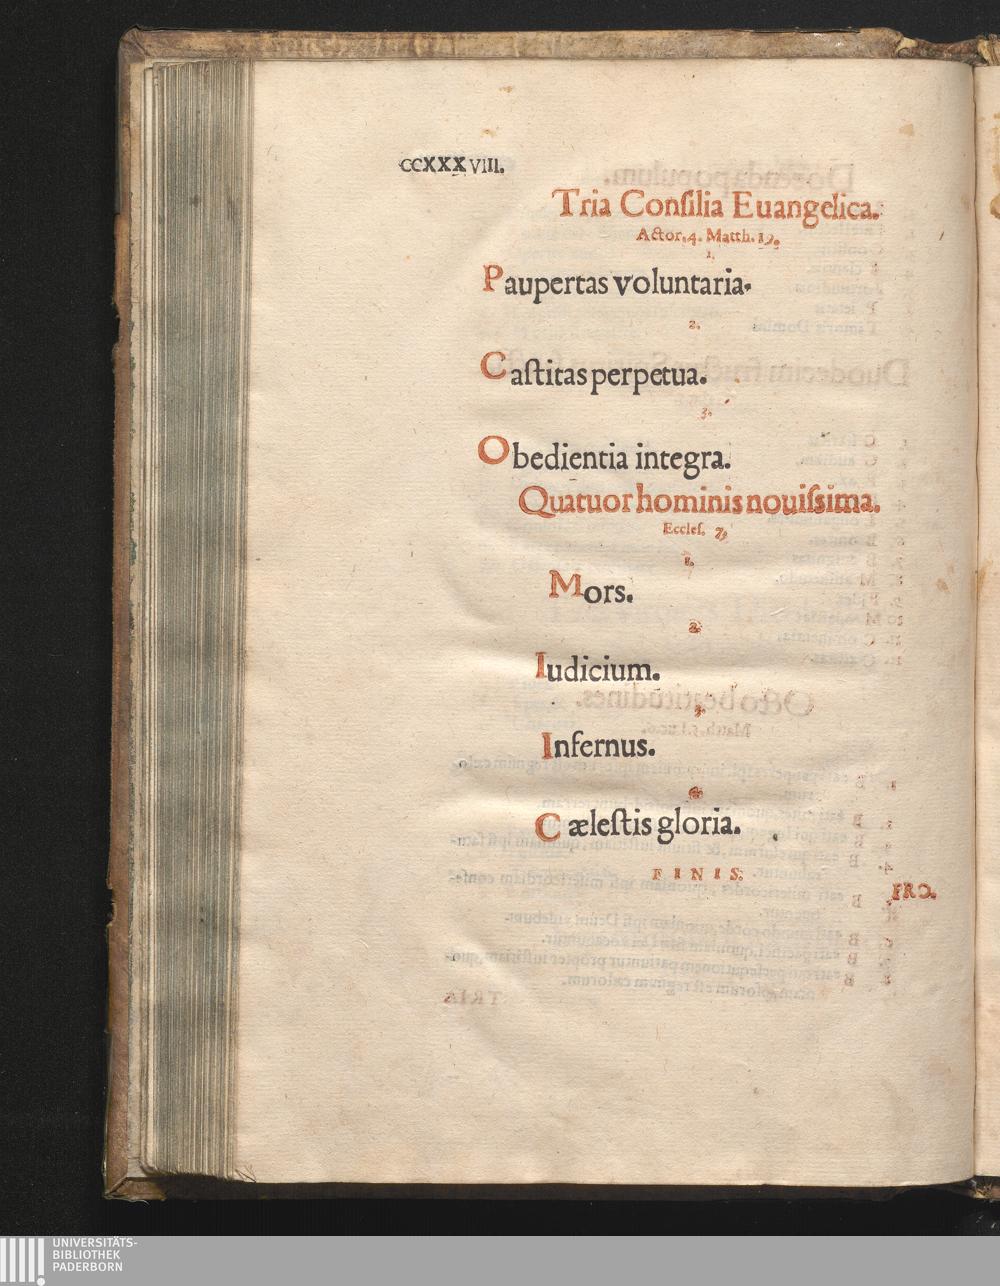 CCXXXVIII.
Tria Conſilia Euangelica.
Actor. 4. Matth. 19.
1.
Paupertas voluntaria.
2.
Caſtitas perpetua.
3.
Obedientia integra.
Quatuor hominis nouiſsima.
Eccleſ. 7,
1.
Mors.
2.
Iudicium.
3.
Infernus.
4.
Cæleſtis gloria.
FINIS.
PRO.
UNIVERSITÄTS-
BIBLIOTHEK
PADERBORN